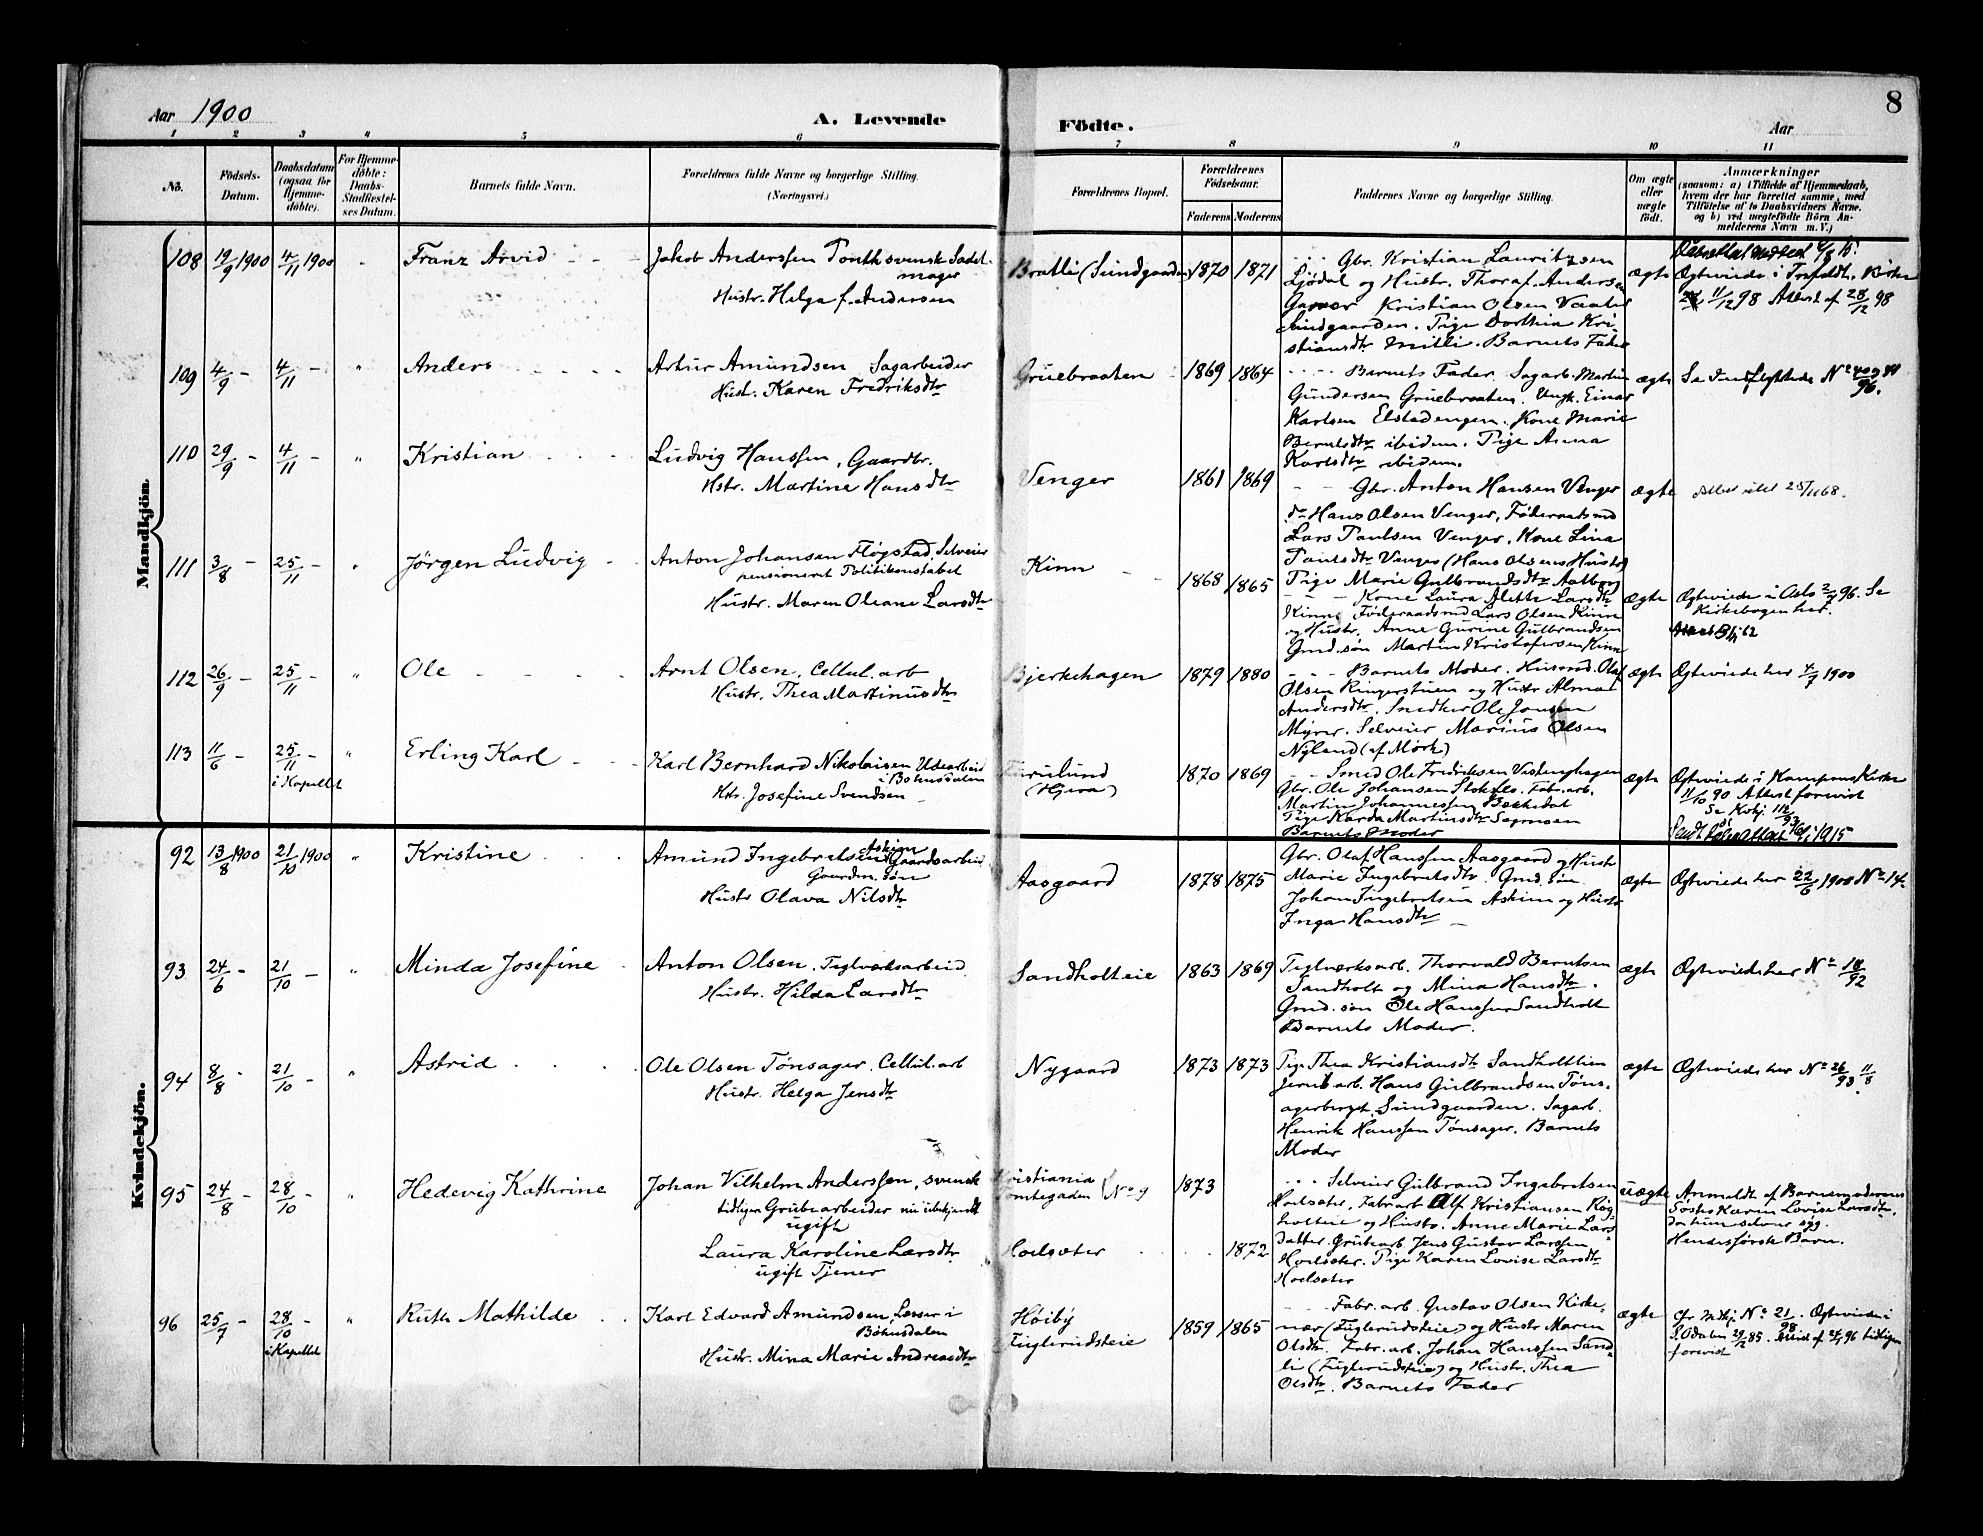 8
Aar 1900
A. Levende
Födte.
Aar
1 2 3 4 5 6 7 8 9 10 11
No.
Födsels-
Datum.
Daabsdatum
(ogsaa for
Hjemme-
döbte).
For Hjemme-
döbte:
Daabs-
Stadfæstel-
ses Datum.
Barnets fulde Navn.
Forældrenes fulde Navne og borgerlige Stilling.
(Næringsvei.)
Forældrenes Bopæl.
Forældrenes
Födselsaar.
Faderens Moderens
Faddernes Navne og borgerlige Stilling.
Om ægte
eller
uægte
födt.
Anmærkninger
(saasom: a) i Tilfælde af Hjemmedaab,
hvem der har forrettet samme, med
Tilföielse af to Daabsvidners Navne.
og b) ved uægtefödte Börn An-
melderens Navn m. V.)
Mandkjön.
108 19/9 1900 4/11 1900 Franz Arvid
Jakob Anderssen Tonth svensk Sadel
mager
Hustr. Helga f. Andersen
Bratli (Sundgaarden) 1870 1871
Gbr. Kristian Lauritzsen
Sjödal og Hustr. Thora f. Andersen
Garver Kristian Olsen Vaaler
Sundgaarden. Pige Dorthia Kri-
stiansdtr Mitli. Barnets Fader
ægte
Ægteviede i Trefoldt. Kirke
11/12 98 Attest af 28/12 98
109 4/9 – 4/11 – " Anders
Artur Amundsen Sagarbeider
Hust. Karen Fredriksdtr
Gruebraaten 1869 1864
Barnets Fader. Sagarb. Martin
Gundersen Gruebraaten. Ungk. Einar
Karlsen Elstadengen. Kone Marie
Berntsdtr ibidem. Pige Anna
Karlsdtr ibidem.
ægte
Se Indflyttede No 40 og 41
96.
110 29/9 – 4/11 – " Kristian
Ludvig Hanssen, Gaardbr.
Hstr. Martine Hansdtr
Venger 1861 1869
Gbr. Anton Hansen Venger
do Hans Olsen Venger, Föderaadsmd
Lars Paulsen Venger, Kone Lina
Paulsdtr Venger (Hans Olsens Hustr)
Pige Marie Gulbrandsdtr Aalborg
ægte
111 3/8 – 25/11 – " Jörgen Ludvig
Anton Johansen Fløgstad, Selveier
pensioneret Politikonstabel
Hustr. Maren Oleane Larsdtr
Kinn 1868 1865
Kone Laura Alette Larsdtr
Kinn, Föderaadsmd Lars Olsen Kinn
og Hustr. Anne Gurine Gulbrandsen
Gmd. søn Martin Kristofersen Kinn
ægte
Ægteviede i Aslo 2/7 96. Se
Kirkebogen her.
112 26/9 25/11 – " Ole
Arnt Olsen, Cellul. arb
Hustr. Thea Martinusdtr
Bjerkehagen 1879 1880
Barnets Moder. Husmd. Olaf
Olsen Ringerstuen og Hustr Alma
Andersdtr. Snedker Ole Jonsen
Myrer. Selveier Marius Olsen
Nyland (af Mörk)
ægte
Ægteviede her 4/7 1900
113 11/6 – 25/11 – " Erling Karl
i Kapellet
Karl Bernhard Nikolaisen Udearbeid
i Bohusdalen
Hstr. Josefine Svendsen
Furulund
(Hjera) 1870 1869
Smed Ole Fredriksen Vestenghagen
Gbr. Ole Johansen Stokfles. Fab. arb.
Martin Johannessen Bakkedal
Pige Karda Martinsdtr Sagmoen
Barnets Moder
ægte
Ægteviede i Kampens Kirke
11/10 90 Attest forevist
Se Kvkj. 112/93
Kvindekjön.
92 13/8 1900 21/10 1900 " Kristine
Amund Ingebretsen Askim Gaardsarbeid
Gaardm. søn
Hustr Olava Nilsdtr
Aasgaard 1878 1875
Gbr. Olaf Hanssen Aasgaard og Hustr
Marie Ingebretsdtr. Gmd. søn
Johan Ingebretsen Askim og Hustr
Inga Hansdtr
ægte
Ægteviede her 22/6 1900 No 14
93 24/6 – 21/10 – " Minda Josefine
Anton Olsen. Teglværksarbeid
Hustr. Hilda Larsdtr
Sandholteie 1863 1869
Teglværksarb. Thorvald Berntsen
Sandholt og Mina Hansdtr.
Gmd. søn Ole Hanssen Sandholt
Barnets Moder.
ægte
Ægteviede her No 18/92
94 8/8 – 21/10 – " Astrid
Ole Olsen Tønsager, Cellul. arb
Hustr. Helga Jensdtr
Nygaard 1873 1873
Pige Thea Kristiansdtr Sandholteien
Jernb arb. Hans Gulbrandsen Tøns-
agerberget, Sundgaarden. Sagarb.
Henrik Hanssen Tønsager. Barnets
Moder
ægte
Ægteviede her No 26/93 11/8
95 24/8 – 28/10 – " Hedevig Kathrine
Johan Vilhelm Anderssen, svensk
tidligere Grubearbeider nu ubekjendt
ugift
Laura Karoline Larsdtr
ugift Tjener
Kristiania
Tomtegaden No 9 1873
Hoelsæter 1872
Selveier Gulbrand Ingebretsen
Hoelsæter, Fabr arb Alf Kristiansen Røg-
holteie og Hustr. Anne Marie Lars
datter. Grubearb Jens Gustav Larssen
Hoelsæter. Pige Karen Lovise Larsdtr
Hoelsæter
uægte
Anmeldt af Barnemoderens
Søster Karen Lovise Larsdtr,
da hun selv er syg.
Hendes første Barn.
96 25/7 28/10 – " Ruth Mathilde
i Kapellet
Karl Edvard Amundsen, Læsser i
Böhnsdalen
Hustr. Mina Marie Andreasdtr
Høiby
Fuglerudsteie 1859 1865
Fabr. arb. Gustav Olsen Kirke,
nær (Fuglerudsteie) og Hustr Maren
Olsdtr. Fabr. arb. Johan Hanssen Sand-
lie (Fuglerudsteie) og Hustr. Thea
Olsdtr. Barnets Fader
ægte
cfr. Mtkj. No 21/98. Ægteviede i
S. Odalen 29/12 85. Attest af 24/4 96 tidligere
forevist